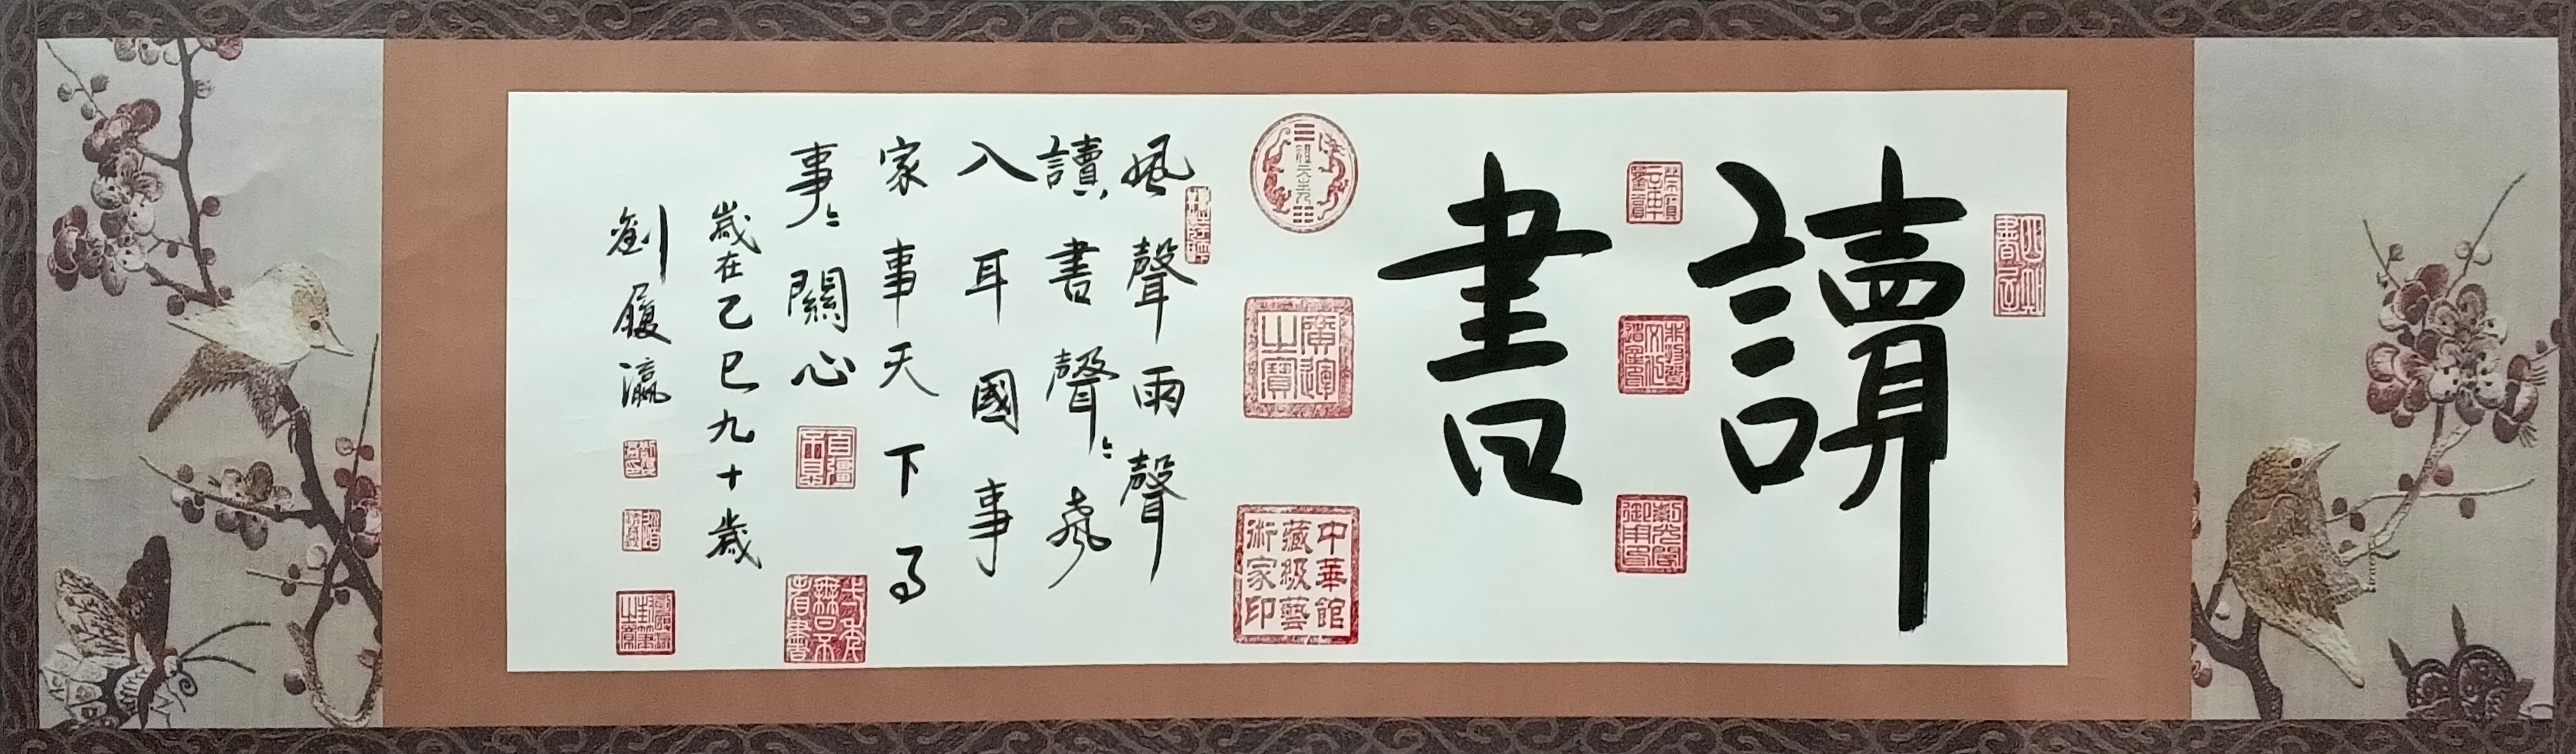 讀書
風聲雨聲
讀書聲聲聲
入耳國事
家事天下事
事事關心
歲在己巳九十歲
劉履瀛
廣運之寶
中華館藏級藝術家印